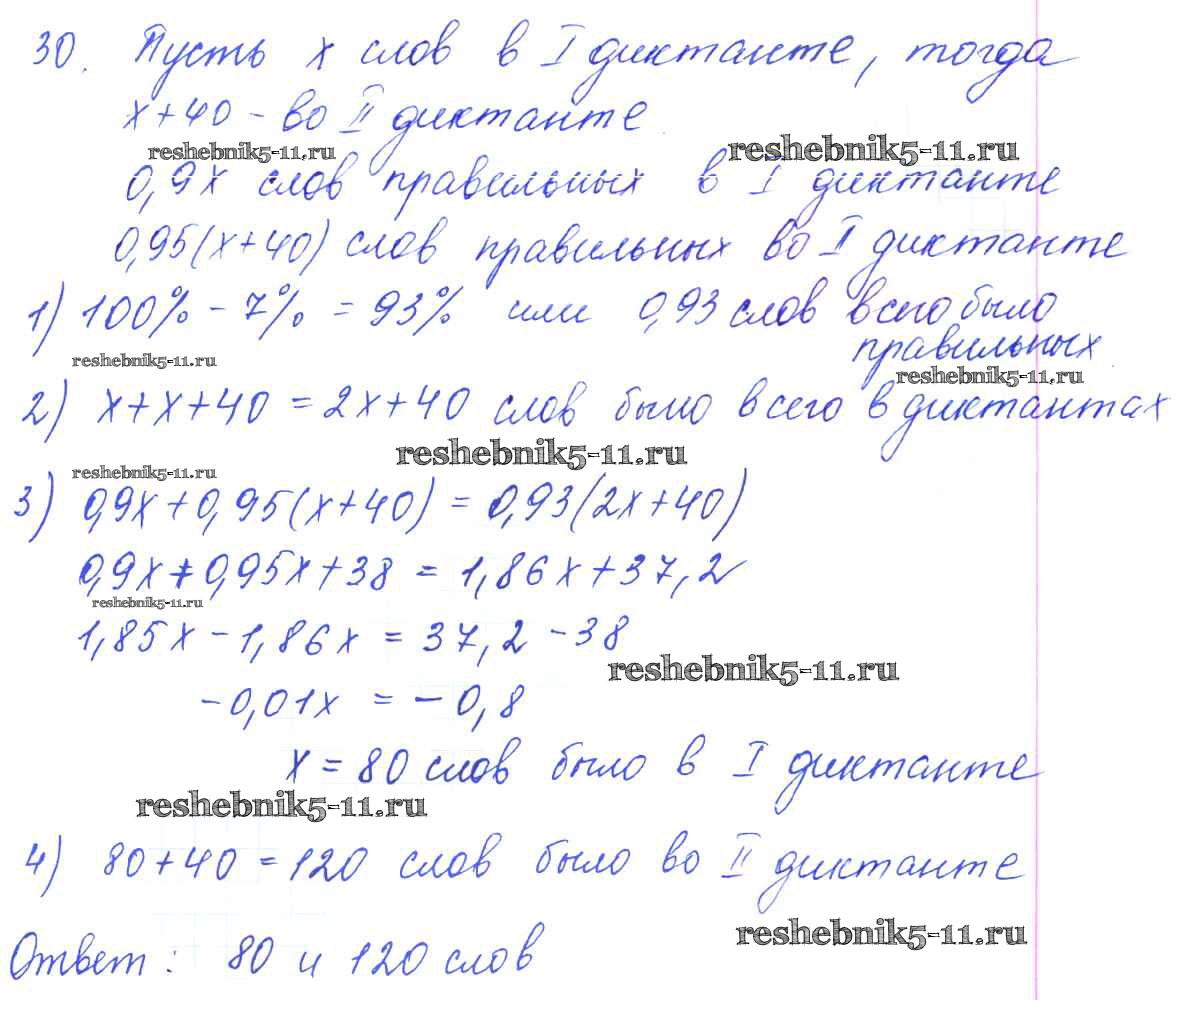 30. Пусть x слов в I диктанте, тогда
x+40 – во II диктанте
reshebnik5-11.ru
reshebnik5-11.ru
0,9x слов правильных в I диктанте
0,95(x+40) слов правильных во II диктанте
1) 100% - 7% = 93% или 0,93 слов всего было
правильных
reshebnik5-11.ru
reshebnik5-11.ru
2) x+x+40 = 2x+40 слов было всего в диктантах
reshebnik5-11.ru
reshebnik5-11.ru
3) 0,9x+0,95(x+40) = 0,93(2x+40)
0,9x+0,95x+38 = 1,86x+37,2
reshebnik5-11.ru
1,85x - 1,86x = 37,2 - 38
reshebnik5-11.ru
-0,01x = -0,8
x = 80 слов было в I диктанте
reshebnik5-11.ru
4) 80+40 = 120 слов было во II диктанте
reshebnik5-11.ru
Ответ: 80 и 120 слов